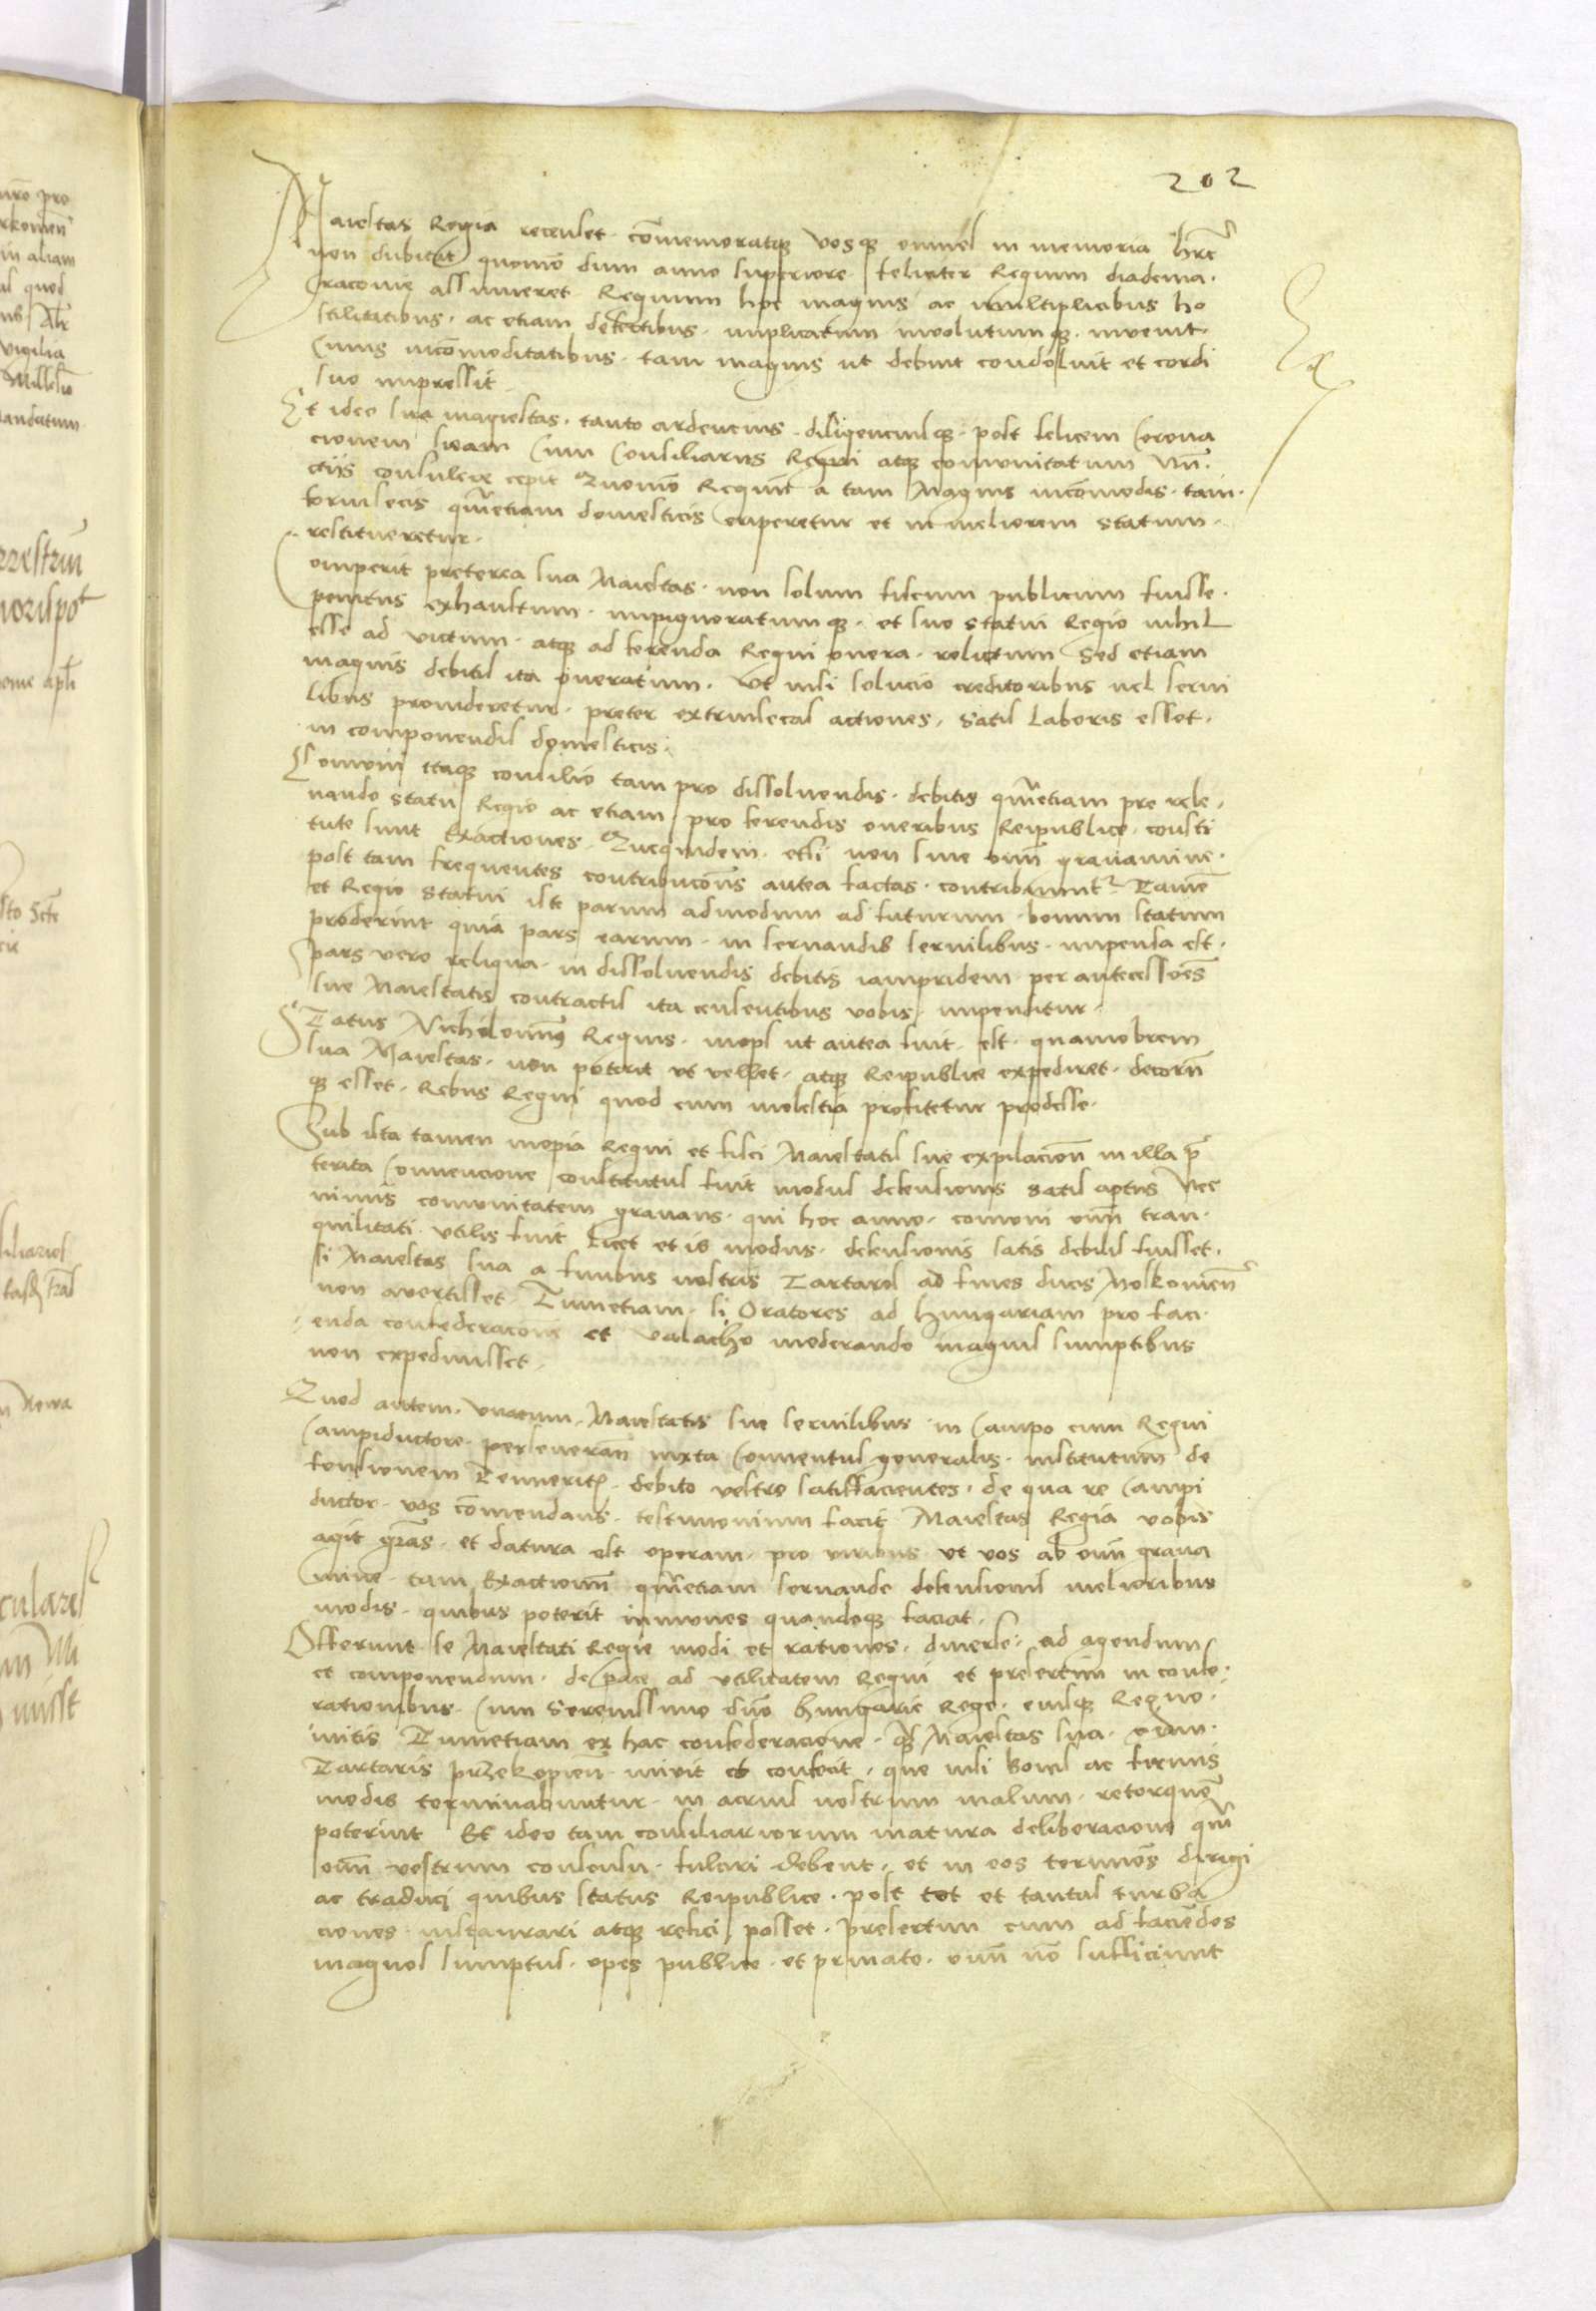 202
Maiestas Regia recenset commemoratque vosque omnes in memoria hre
non dubitat quomo dum anno superiore feliciter Regium diadema
Cracovie assumeret Regnum hoc magnis ac multiplicibus ho
stilitatibus ac etiam defectibus implicatum involutumque invenit
Cuius incommoditatibus tam magnis ut debuit condoluit et cordi
suo impressit
Et ideo sua magiestas tanto ardencius diligenciusque post felicem Corona
cionem suam Cum Consiliariis Regni atque comunitatum Nun
ctiis consulere cepit Quomo Regnum a tam Magnis incommodis tam
forinsecis quametiam domesticis eriperetur et in meliorem statum
restitueretur
Comperit preterea sua Maiestas non solum fiscum publicum fuisse
penitus exhaustum impignoratumque et suo statui Regio nihil
esse ad victum atque ad ferenda Regni onera relictum Sed etiam
magnis debitis ita oneratum Ut nisi solucio creditoribus vel servi
libus provideretur preter extrinsecas actiones satis laboris esset
in componendis domesticis
Comuni itaque consilio tam pro dissolvendis debitis quametiam pro rele
vando statu Regio ac etiam pro ferendis oneribus Reipublice consti
tute sunt Exactiones Quequidem etsi non sine omni gravamine
post tam frequentes contribucones antea factas contribuunt Tame
et Regio statui iste parum admodum ad futurum bonum statum
proderint quia pars earum in servandis servilibus impensa est
pars vero reliqua in dissolvendis debitis iampridem per antecessores
sue Maiestatis contractis ita censentibus vobis impenditur
STatus Nichilominus Regius inops ut antea fuit est quamobrem
sua Maiestas non poterit ut vellet atque Reipublice expediret decorum
que esset Rebus Regni quod cum molestia profitetur prodesse
Sub ista tamen inopia Regni et fisci Maiestatis sue expilacione in illa pre
terita Convencione constitutus fuit modus defensionis satis aptus Nec
nimis comunitatem gravans qui hoc anno comuni omni tran
quilitati utilis fuit Licet et is modus defensionis satis debilis fuisset
si Maiestas sua a finibus nostris Tartaros ad fines ducis Moskovien
non avertisset Tumetiam si Oratores ad Hungariam pro faci
enda confederacione et Valacho moderando magnis sumptibus
non expedivisset
Quod autem unacum Maiestatis sue servilibus in Campo cum Regni
Campiductore perseveran iuxta Conventus generalis institutum de
fensionem Tenueritis debito vestro satisfacientes de qua re Campi
ductor vos commendans testimonium facit Maiestas Regia vobis
agit gras et datura est operam pro viribus ut vos ab omni grava
mine tam Exactionum quametiam servande defensionis melioribus
modis quibus poterit immunes quandoque faciat
Offerunt se Maiestati Regie modi et rationes diverse ad agendum
et componendum de pace ad utilitatem Regni et presertim in confe
rationibus Cum Serenissimo dno Hungarie Rege eiusque Regno
initis Tumetiam ex hac confederacione quam Maiestas sua cum
Tartaris przekopien inivit et confecit que nisi bonis ac firmis
modis terminabuntur in acrius nostrum malum retorque
poterint Et ideo tam consiliariorum matura deliberacione qua
omni vestrum consensu fulciri debent et in eos terminos dirigi
ac traduci quibus status Reipublice post tot et tantas turba
ciones instaurari atque refici posset presertim cum ad faciedos
magnos sumptus opes publice et private omni no sufficiunt